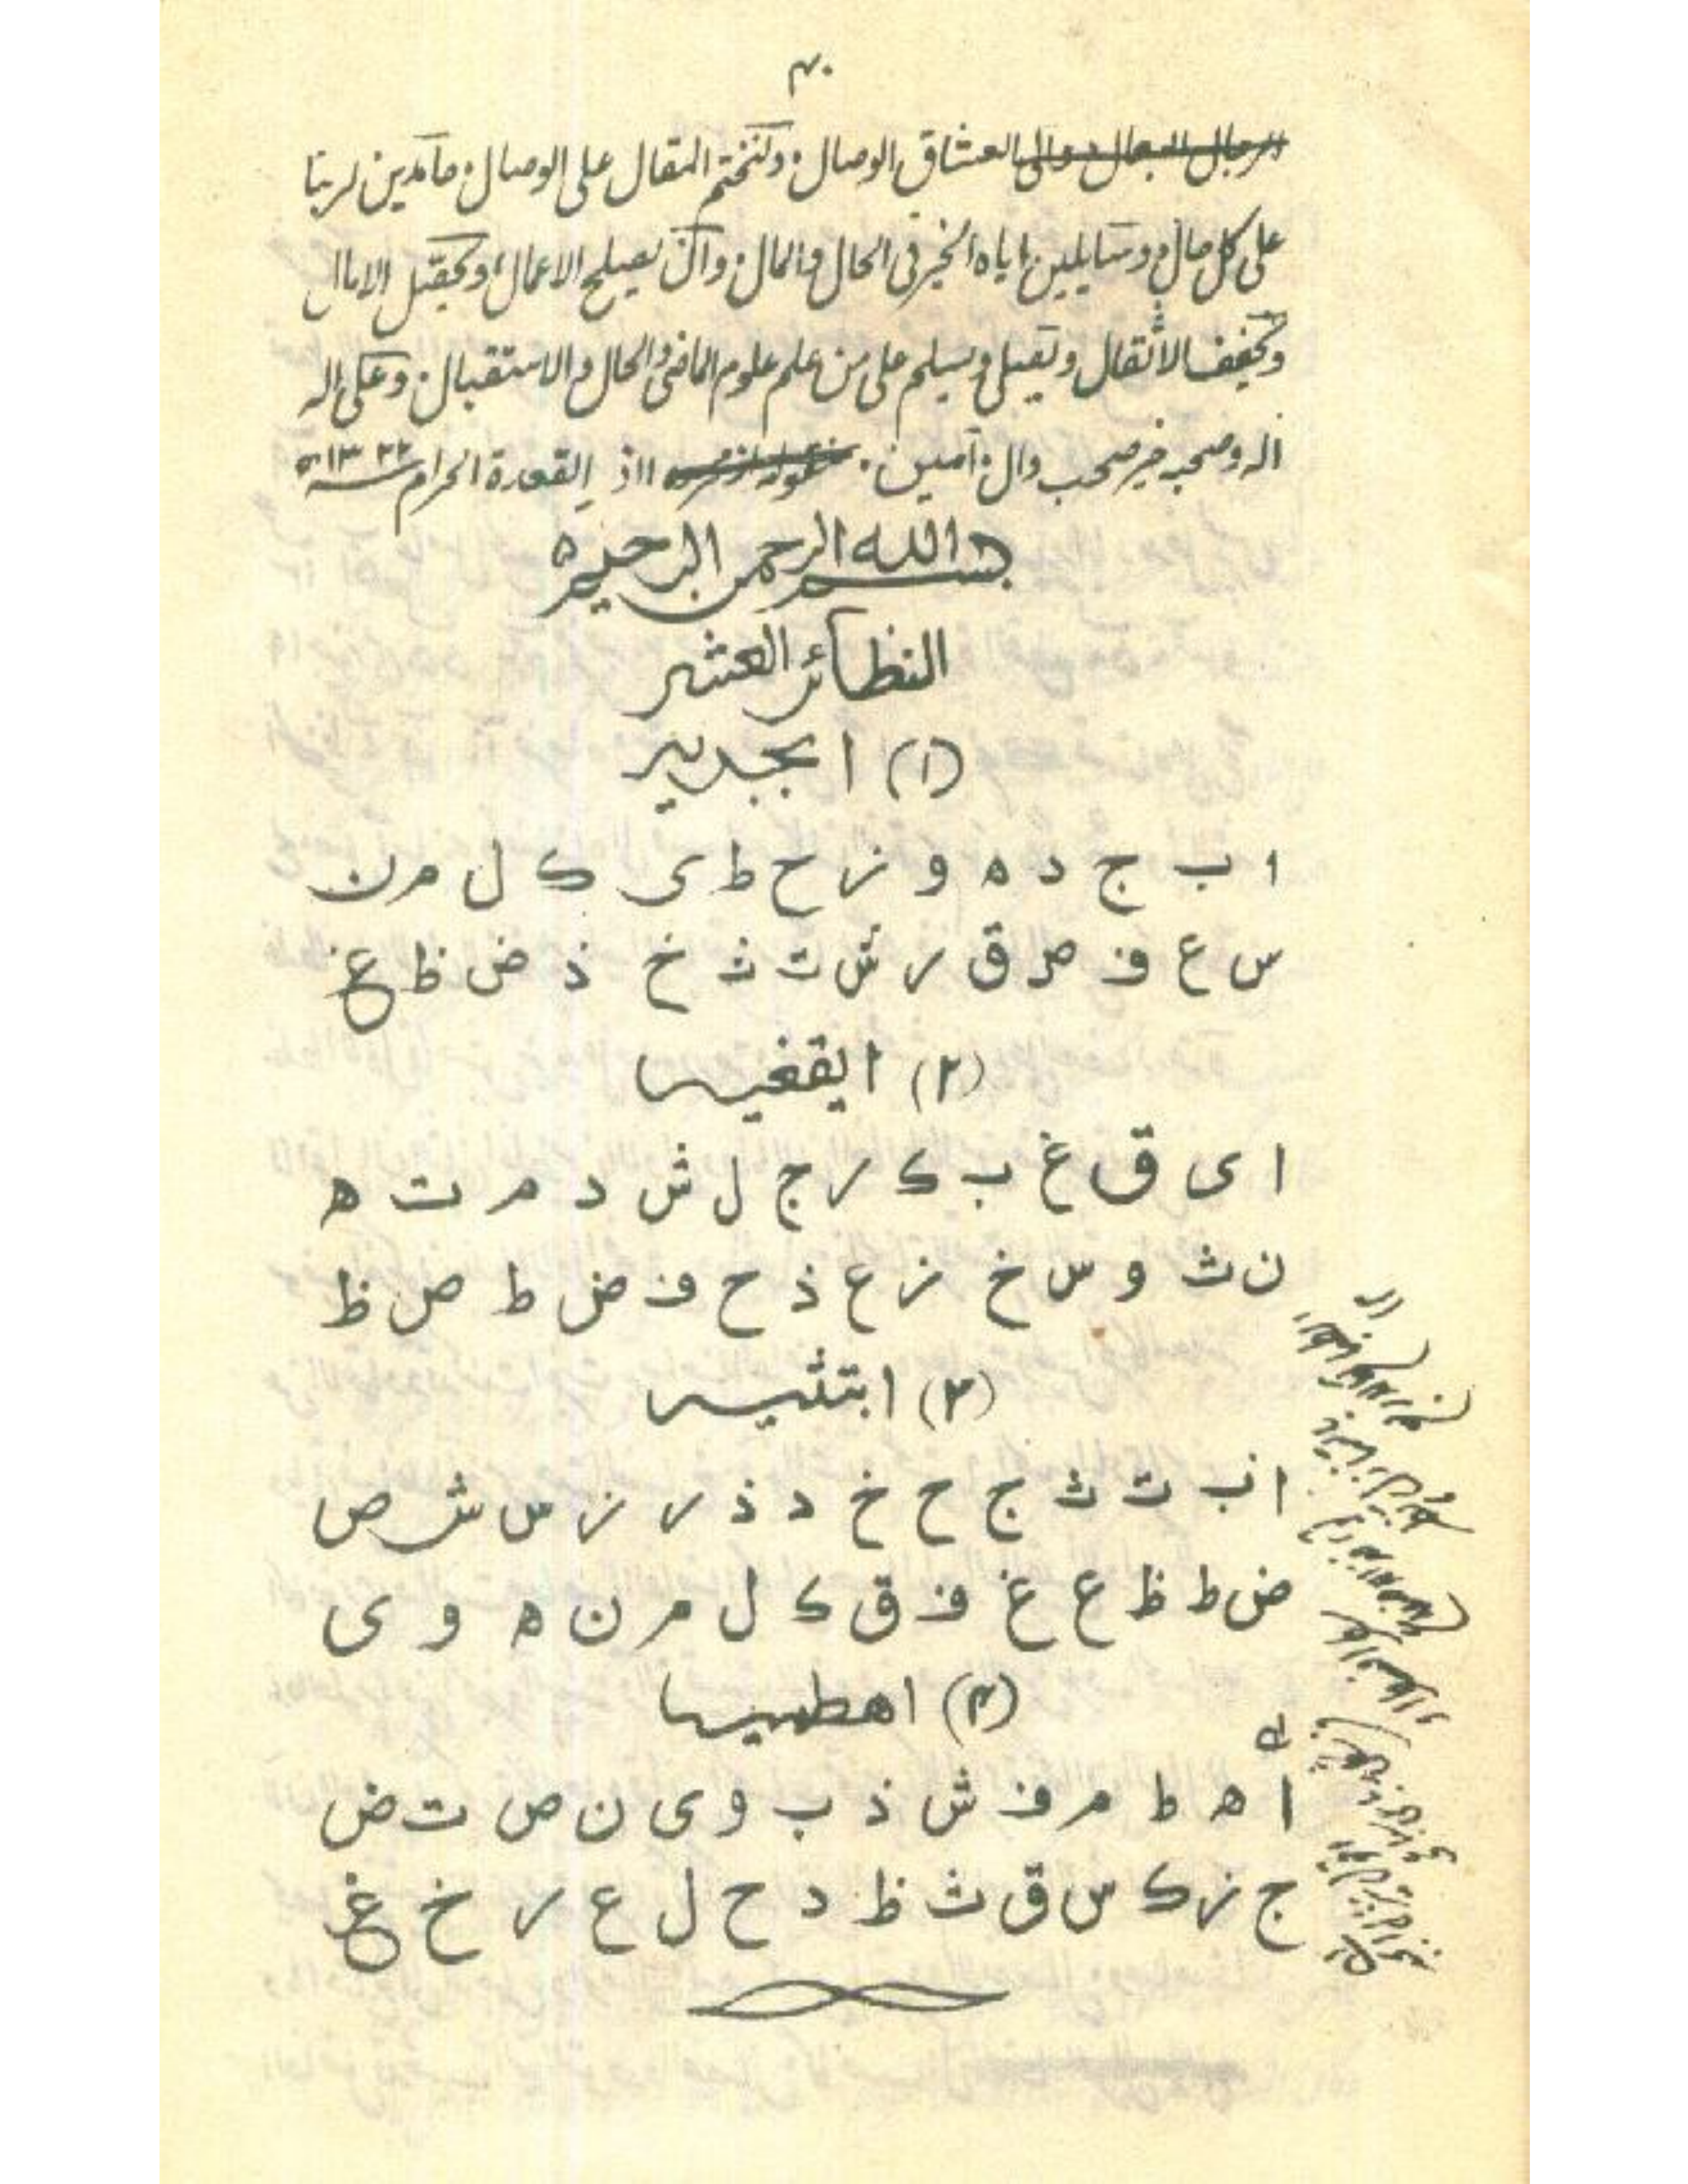 ۴۰
العشاق الوصال، ولنختم المقال على الوصال، حامدين لربنا
على كل حال، وسايلين اياه الخير فى الحال والمال، وان يصلح الاعمال، ويقبل الامال
ويخفف الاثقال ويصلى ويسلم على من علم علوم الماضى والحال والاستقبال، وعلى اله
اله وصحبه خير صحب وال، آمين، ١١ذى القعدة الحرام سنه ١٣٢٢ه
بسم الله الرحمن الرحيم ه
النظائر العشر
(١) ابجديه
ا ب ج د ه و ز ح ط ى ك ل م ن
س ع ف ص ق ر ش ت ث خ ذ ض ظ غ
(٢) ايقغيه
ا ى ق غ ب ك ر ج ل ش د م ت ه
ن ث و س خ ز ع ذ ح ف ض ط ص ظ
(٣) ابتثيه
ا ب ت ث ج ح خ د ذ ر ز س ش ص
ض ط ظ ع غ ف ق ك ل م ن ه و ى
(۴) اهطميه
ا ه ط م ف ش ذ ب و ى ن ص ت ض
ج ز ك س ق ث ظ د ح ل ع ر خ غ